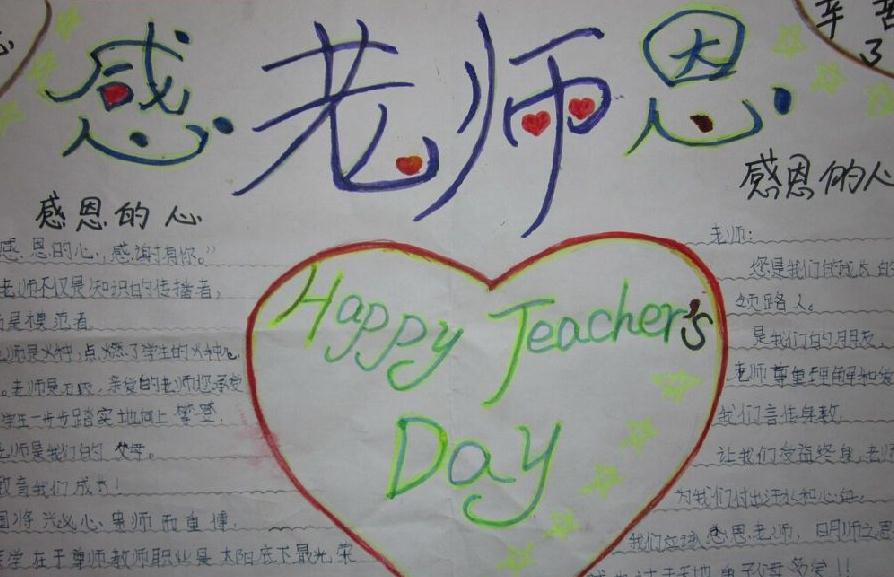 感老师恩
辛苦
了
感恩的心
感恩的心，感谢有你。”
老师不仅是知识的传播者，
是模范者
师是火种，点燃了学生的火种
老师是石级，
学生一步步踏实地向上攀登.
师是我们的父母。
教育我们成
国将兴必心 贵师而重博.
在于尊师教师职业是太阳底下最光荣
Happy Teacher's
Day
感恩的心
老师：
您是我们成长
领路人。
是我们的朋友
老师尊重理解和
我们言传身教
让我们受益终身，老师
为我们付出汗水和心血.
我们应该感恩老师，